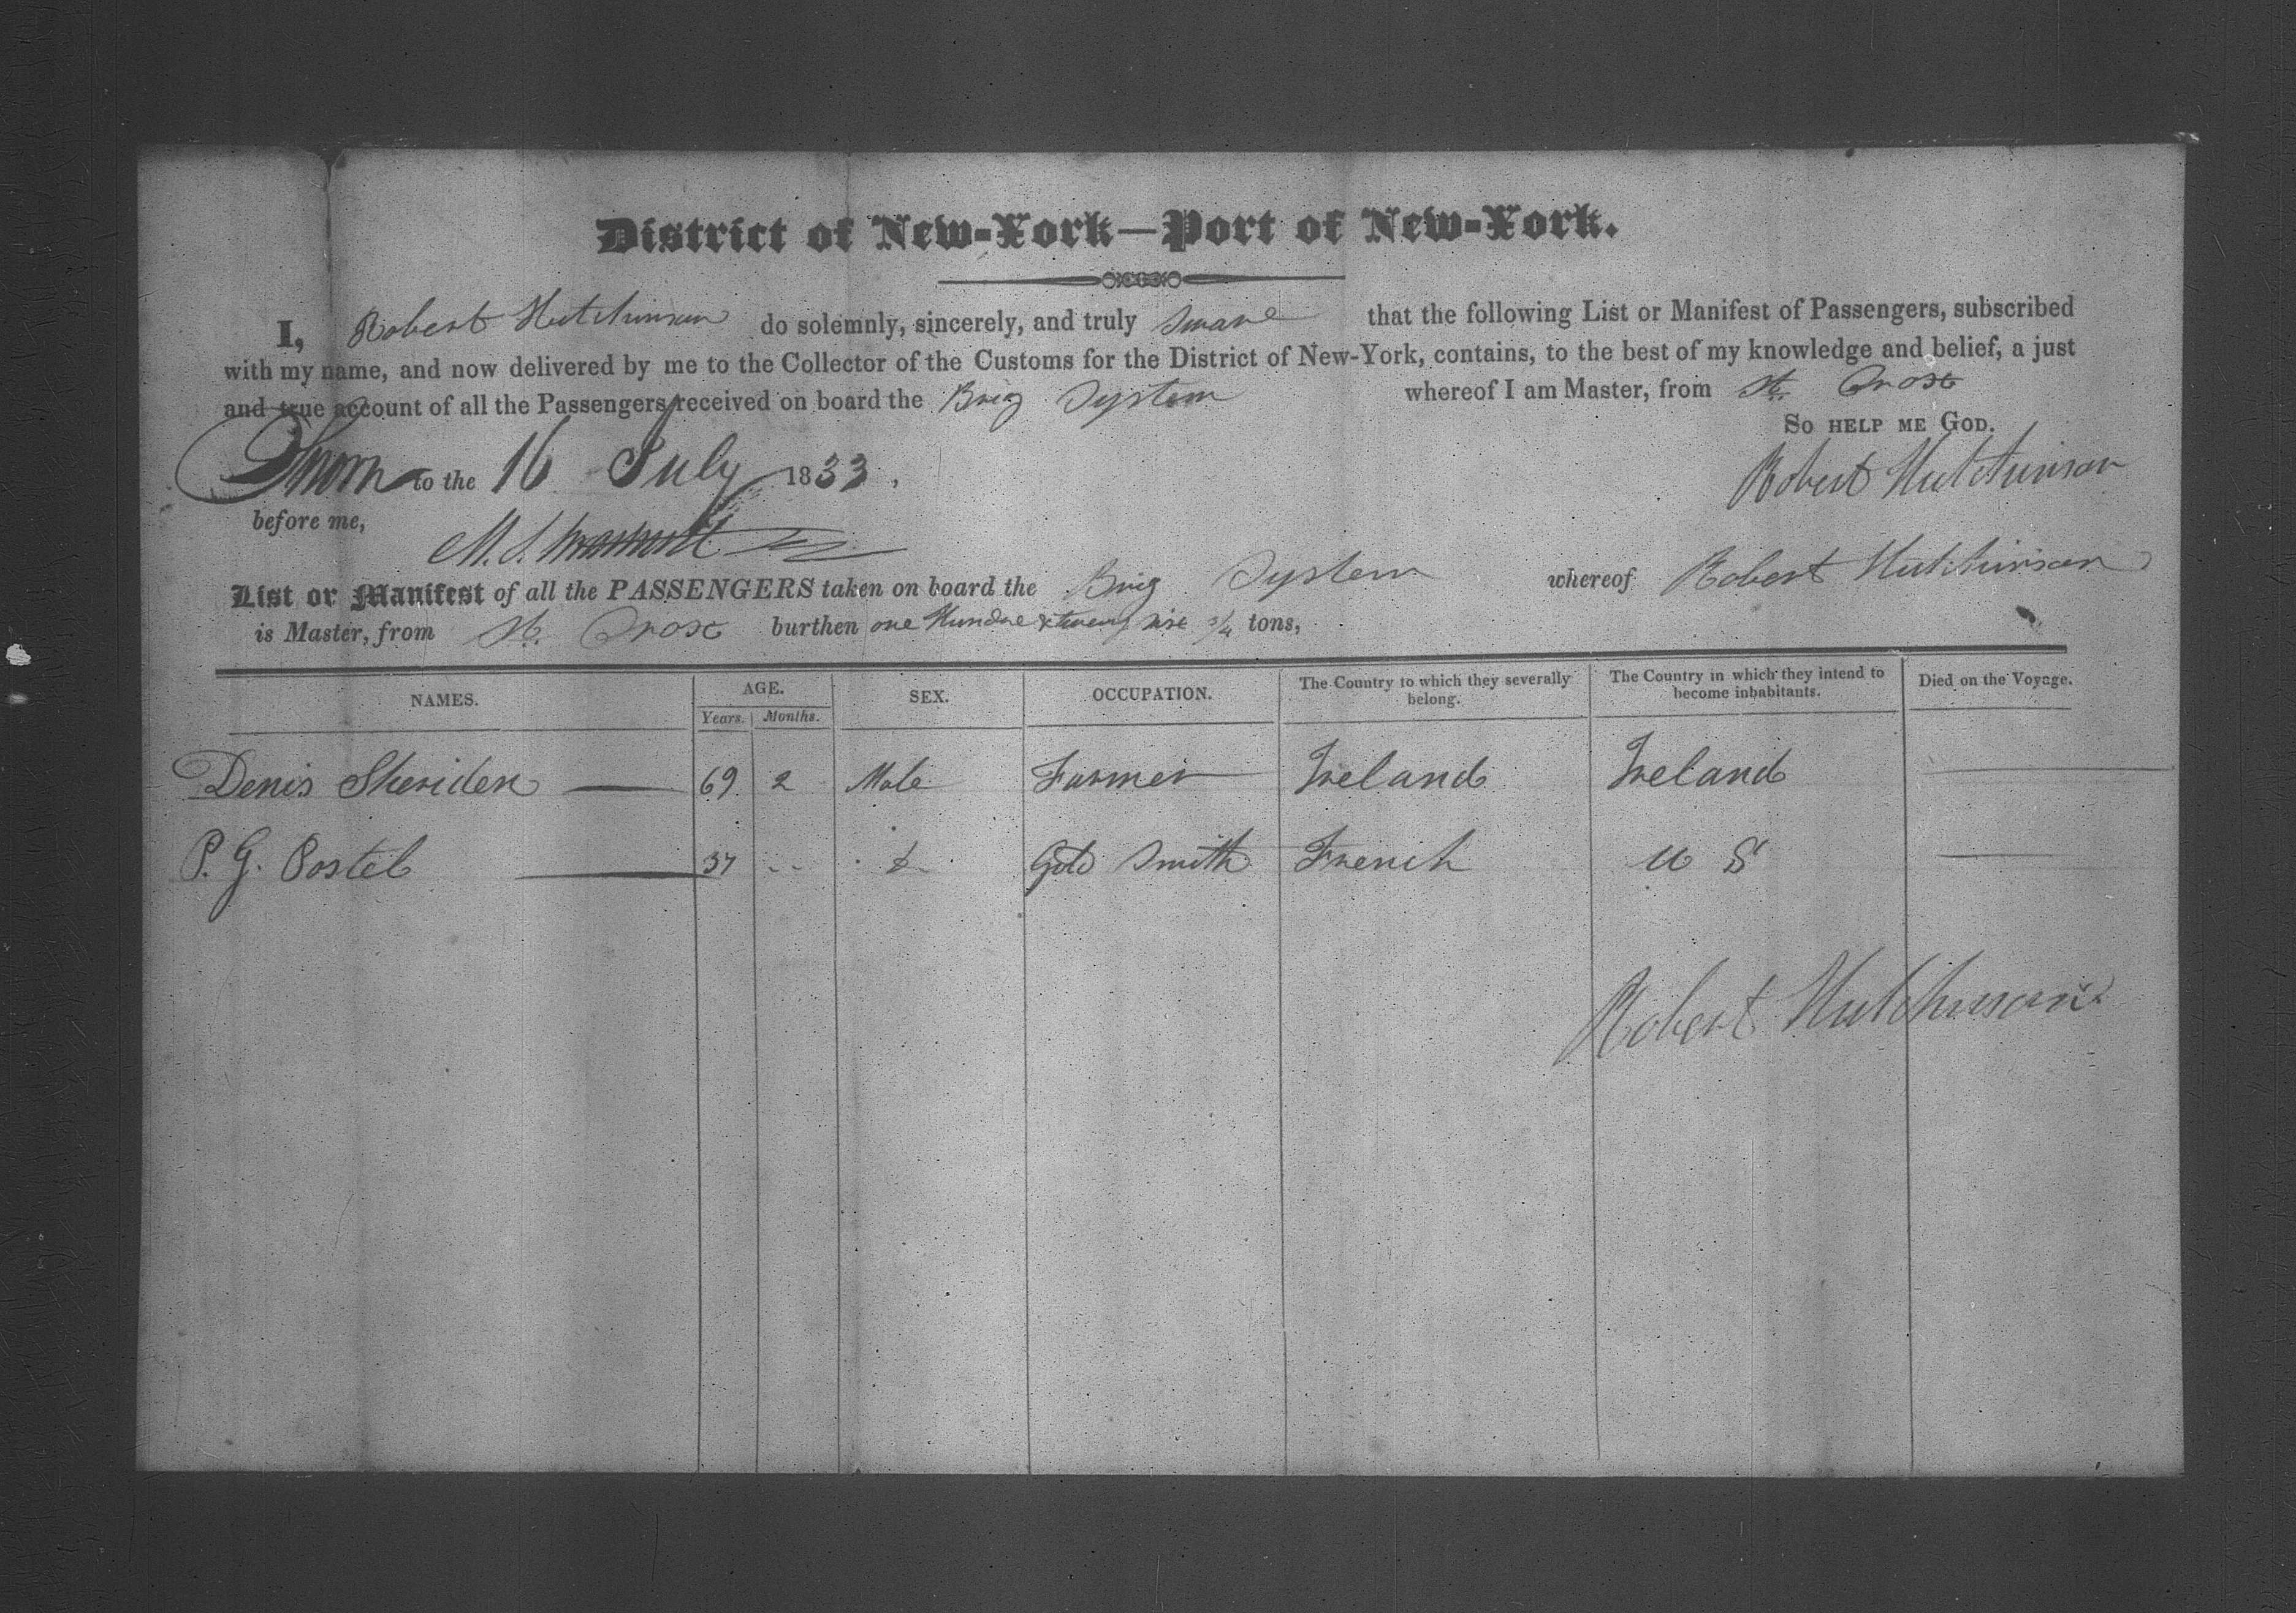 District of New-York—Port of New-York.
I, Robert Hutchinson do solemnly, sincerely, and truly sware that the following List or Manifest of Passengers, subscribed
with my name, and now delivered by me to the Collector of the Customs for the District of New-York, contains, to the best of my knowledge and belief, a just
and true account of all the Passengers received on board the Brig System whereof I am Master, from St. Croix
So help me God.
Sworn to the 16 July 1833, Robert Hutchinson
before me,
M. S.
List or Manifest of all the PASSENGERS taken on board the Brig System whereof Robert Hutchinson
is Master, from St. Croix burthen one Hundre & twenty six 3/4 tons,
NAMES. AGE. SEX. OCCUPATION. The Country to which they severally belong. The Country in which they intend to become inhabitants. Died on the Voyage.
Years. Months.
Denis Sheriden — 69 2 Male Farmer Ireland Ireland —
P. G. Postel — 37 -- Gold Smith French U S —
Robert Hutchinson